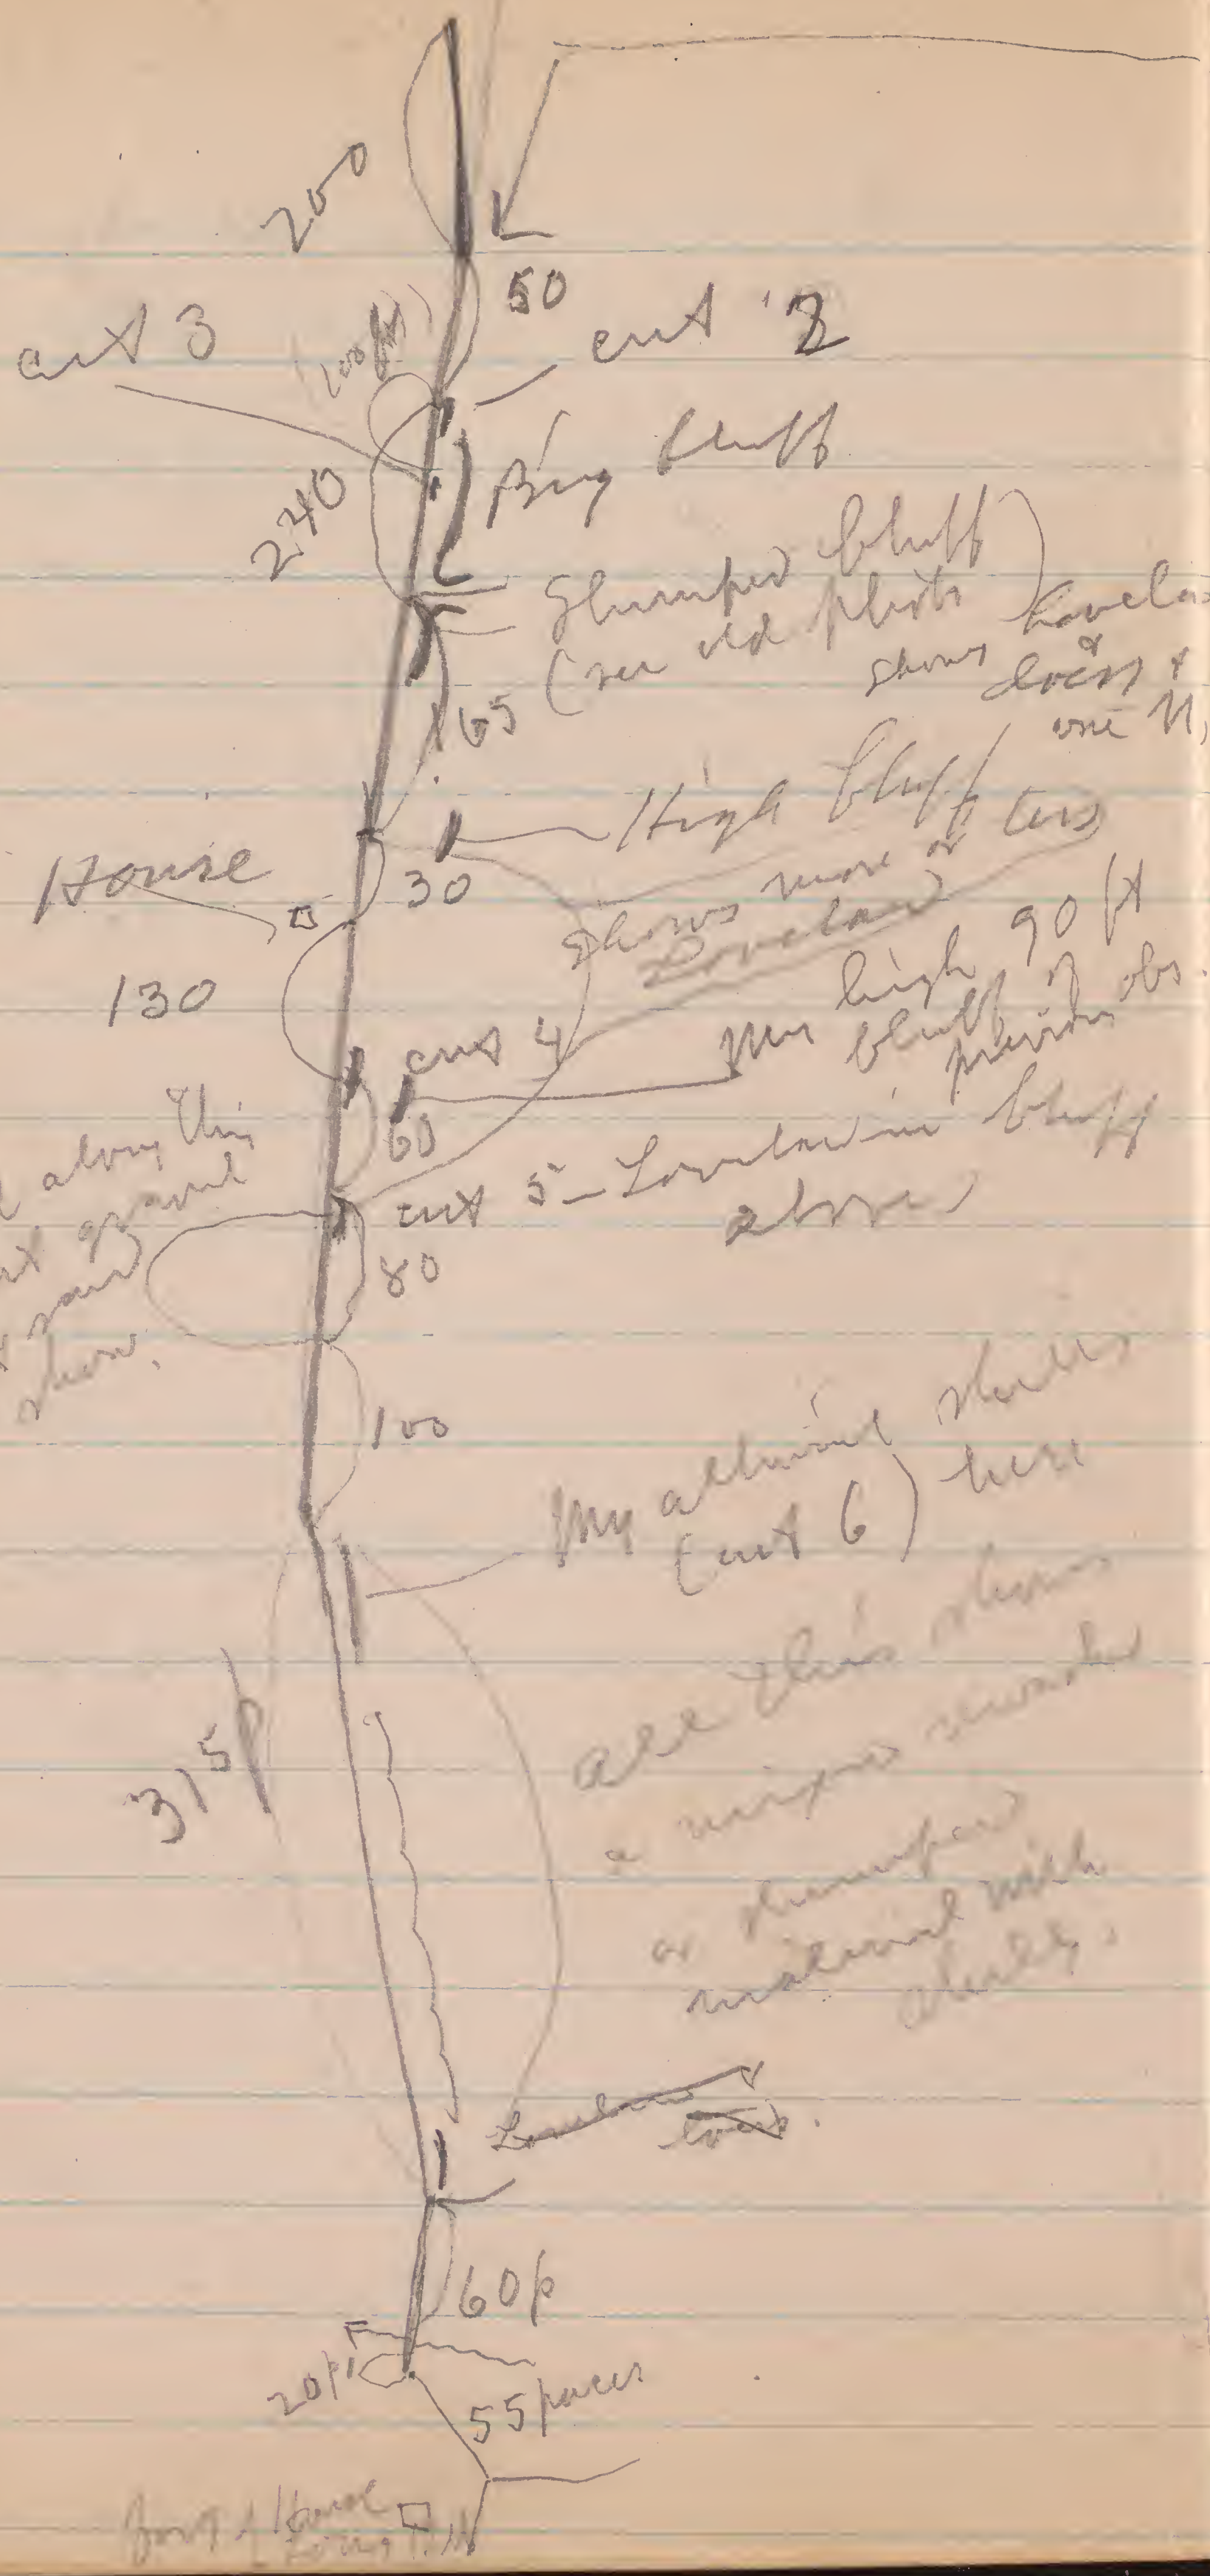 200
50
cut 3
(100 ft)
cut 2
Big bluff
240
Slumped bluff
(see old photo)
shows Lovelan
& loess &
one N,
65
High bluff
House
30
Shows more or less
Loveland
130
cut 4
My high 90 ft
bluff of
previous obs.
60
along this
gravel
& sand
show.
cut 5 - Loveland in bluff
above
80
100
My alluvial shells
(cut 6) here
All this shows
a mixed reworked
or slumped
material with
shells.
315 p
Loveland &
loess.
60 p
20 p
55 paces
House